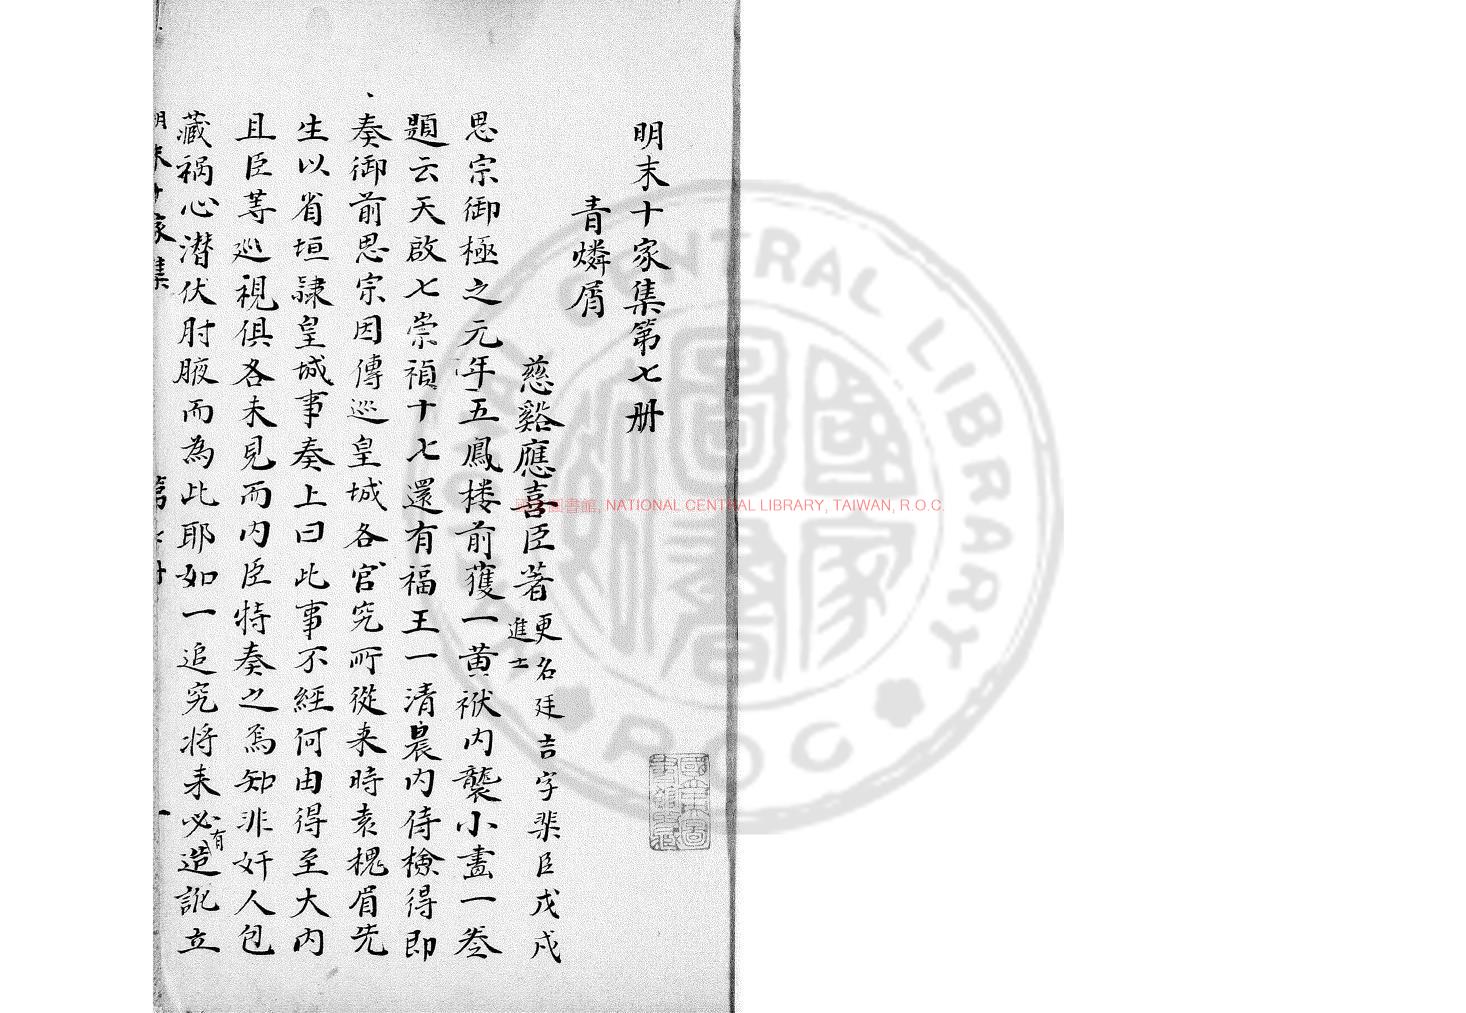 明末十家集第七册
青燐屑
慈谿應喜臣著 更名廷吉字棐臣戊戌
進士
思宗御極之元年五鳳楼前獲一黄袱内襲小畫一卷
題云天啟七崇禎十七還有福王一清晨内侍檢得即
奏御前思宗因傳巡皇城各官究所從来時袁槐眉先
生以省垣隷皇城事奏上曰此事不經何由得至大内
且臣䓁巡視俱各未見而内臣特奏之焉知非奸人包
藏禍心潛伏肘腋而為此耶如一追究将来必有造訛立
明末十家集
第七册
一
國家圖書館, NATIONAL CENTRAL LIBRARY, TAIWAN, R.O.C.
NATIONAL CENTRAL LIBRARY
ROC